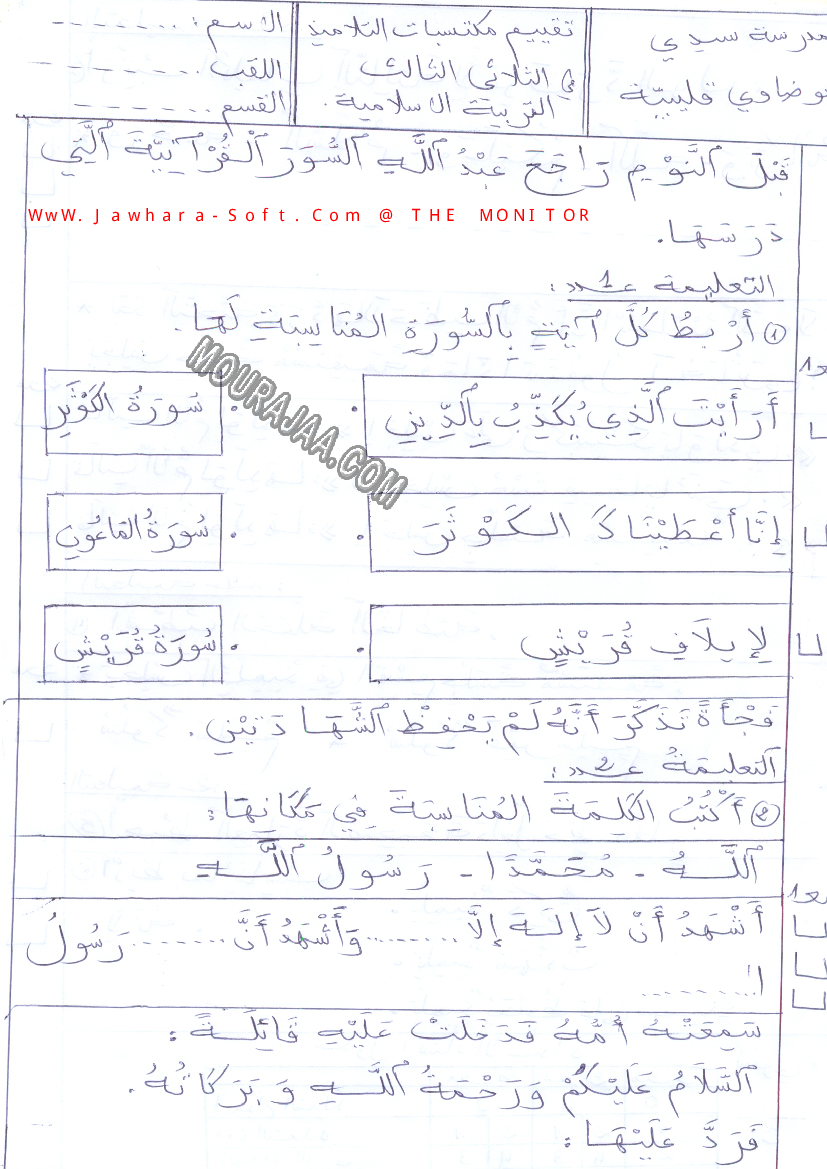 مدرسة سيدي
قليبية
تقييم مكتسبات التلاميذ
في الثلاثي الثالث
التربية الاسلامية.
الاسم: .......
اللقب ........
القسم ........
قَبْلَ ٱلنَّوْمِ رَاجَعَ عَبْدُ ٱللَّهِ ٱلسُّوَرَ ٱلْقُرْآنِيَّةَ ٱلَّتِي
WwW.Jawhara-Soft.Com @ THE MONITOR
دَرَسَهَا.
التعليمة عـ1ـدد:
① أَرْبِطُ كُلَّ آيَةٍ بِٱلسُّورَةِ المُنَاسِبَةِ لَهَا.
MOURAJAA.COM
مع1
أَرَأَيْتَ ٱلَّذِي يُكَذِّبُ بِٱلدِّينِ . . سُورَةُ الكَوْثَرِ
إِنَّا أَعْطَيْنَاكَ الكَوْثَرَ . . سُورَةُ المَاعُونِ
لِإِيلَافِ قُرَيْشٍ . . سُورَةُ قُرَيْشٍ
فَجْأَةً تَذَكَّرَ أَنَّهُ لَمْ يَحْفِظْ ٱلشَّهَادَتَيْنِ.
التعليمةُ عـ2ـدد:
② أَكْتُبُ الكَلِمَةَ المُنَاسِبَةَ فِي مَكَانِهَا:
ٱللَّهُ - مُحَمَّدًا - رَسُولُ ٱللَّهِ
مع1
أَشْهَدُ أَنْ لَا إِلَهَ إِلَّا ........ وَأَشْهَدُ أَنَّ ........ رَسُولُ
ا ........
سَمِعَتْهُ أُمُّهُ فَدَخَلَتْ عَلَيْهِ قَائِلَةً:
ٱلسَّلَامُ عَلَيْكُمْ وَرَحْمَةُ ٱللَّهِ وَبَرَكَاتُهُ.
فَرَدَّ عَلَيْهَا: